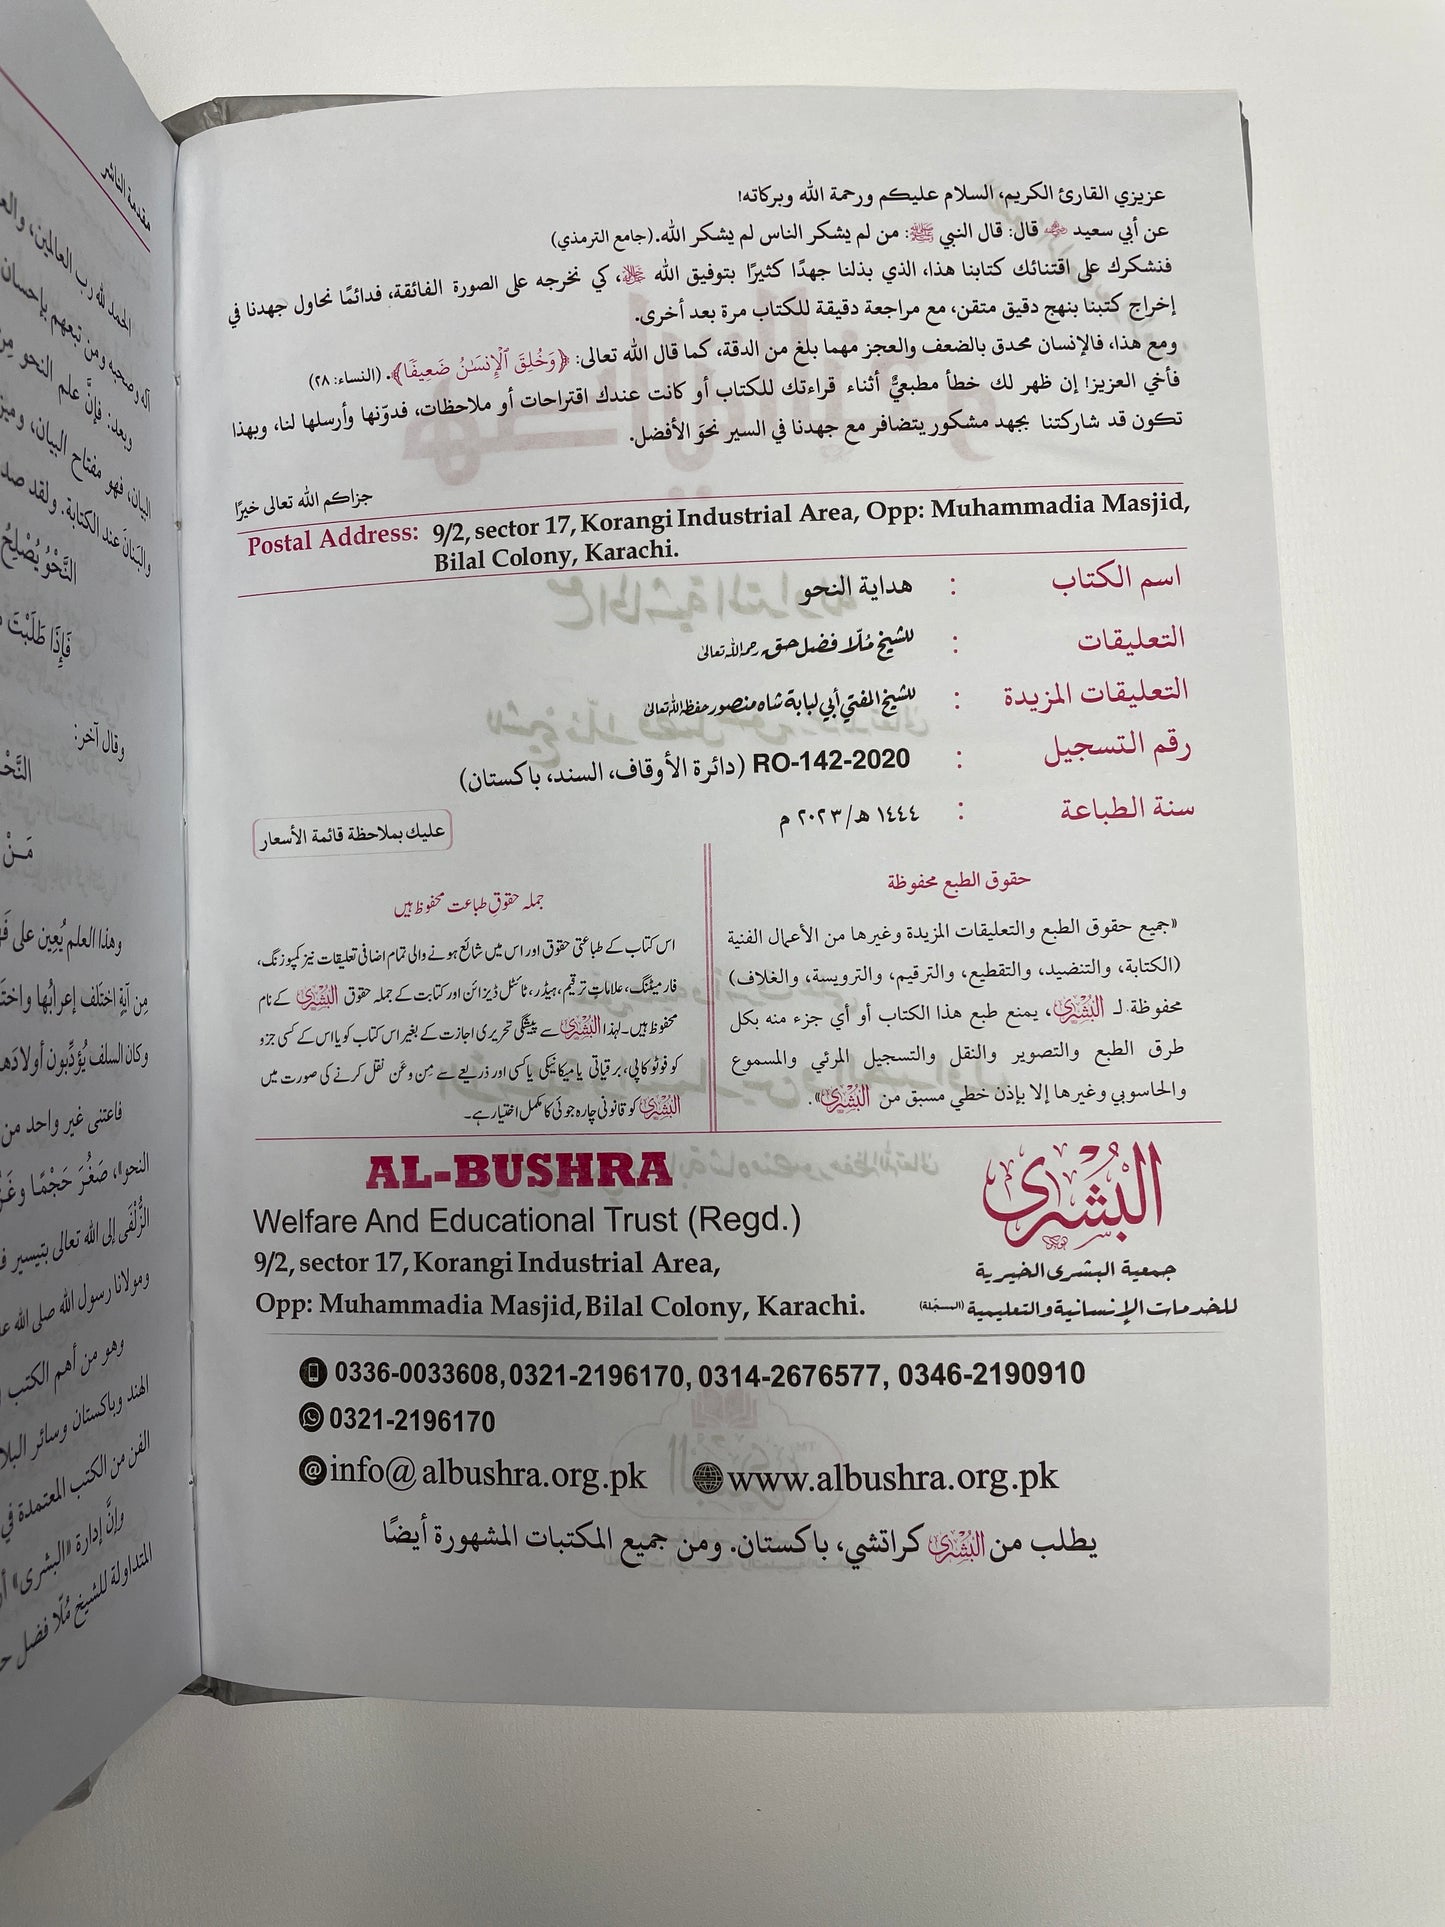 عزيزي القارئ الكريم، السلام عليكم ورحمة الله وبركاته!
عن أبي سعيد ﵁ قال: قال النبي ﷺ: من لم يشكر الناس لم يشكر الله. (جامع الترمذي)
فنشكرك على اقتنائك كتابنا هذا، الذي بذلنا جهدًا كثيرًا بتوفيق الله ﷻ، كي نخرجه على الصورة الفائقة، فدائمًا نحاول جهدنا في
إخراج كتبنا بنهج دقيق متقن، مع مراجعة دقيقة للكتاب مرة بعد أخرى.
ومع هذا، فالإنسان محدق بالضعف والعجز مهما بلغ من الدقة، كما قال الله تعالى: ﴿وَخُلِقَ ٱلْإِنسَـٰنُ ضَعِيفًا﴾. (النساء: ٢٨)
فأخي العزيز! إن ظهر لك خطأ مطبعيٌّ أثناء قراءتك للكتاب أو كانت عندك اقتراحات أو ملاحظات، فدوّنها وأرسلها لنا، وبهذا
تكون قد شاركتنا بجهد مشكور يتضافر مع جهدنا في السير نحوَ الأفضل.
جزاكم الله تعالى خيرًا
Postal Address: 9/2, sector 17, Korangi Industrial Area, Opp: Muhammadia Masjid,
Bilal Colony, Karachi.
اسم الكتاب : هداية النحو
التعليقات : للشيخ مُلّا فضل حق رحمه الله تعالى
التعليقات المزيدة : للشيخ المفتي أبي لبابة شاه منصور حفظه الله تعالى
رقم التسجيل : RO-142-2020 (دائرة الأوقاف، السند، باكستان)
سنة الطباعة : ١٤٤٤ هـ/٢٠٢٣ م
عليك بملاحظة قائمة الأسعار
حقوق الطبع محفوظة
«جميع حقوق الطبع والتعليقات المزيدة وغيرها من الأعمال الفنية
(الكتابة، والتنضيد، والتقطيع، والترقيم، والترويسة، والغلاف)
محفوظة لـ البُشْرى، يمنع طبع هذا الكتاب أو أي جزء منه بكل
طرق الطبع والتصوير والنقل والتسجيل المرئي والمسموع
والحاسوبي وغيرها إلا بإذن خطي مسبق من البُشْرى».
جملہ حقوقِ طباعت محفوظ ہیں
اس کتاب کے طباعتی حقوق اور اس میں شائع ہونے والی تمام اضافی تعلیقات نیز کمپوزنگ،
فارمیٹنگ، علاماتِ ترقیم، ہیڈر، ٹائٹل ڈیزائن اور کتابت کے جملہ حقوق البُشْرى کے نام
محفوظ ہیں۔ لہٰذا البُشْرى سے پیشگی تحریری اجازت کے بغیر اس کتاب کو یا اس کے کسی جزو
کو فوٹو کاپی، برقیاتی یا میکانیکی یا کسی اور ذریعے سے مِن و عَن نقل کرنے کی صورت میں
البُشْرى کو قانونی چارہ جوئی کا مکمل اختیار ہے۔
AL-BUSHRA
Welfare And Educational Trust (Regd.)
9/2, sector 17, Korangi Industrial Area,
Opp: Muhammadia Masjid, Bilal Colony, Karachi.
البُشْرى
جمعية البشرى الخيرية
للخدمات الإنسانية والتعليمية (المسجّلة)
0336-0033608, 0321-2196170, 0314-2676577, 0346-2190910
0321-2196170
info@albushra.org.pk www.albushra.org.pk
يطلب من البُشْرى كراتشي، باكستان. ومن جميع المكتبات المشهورة أيضًا
مقدمة الناشر
الحمد لله رب العالمين،
آله وصحبه ومن تبعهم بإحسان
وبعد: فإنَّ علم النحو
البيان، فهو مفتاح البيان،
والبَنانَ عند الكتابة. ولقد
النَّحْوُ يُصْلِحُ
فَإِذَا طَلَبْتَ
وقال آخر:
مَـنْ
وهذا العلم يُعِين على
مِن آيةٍ اختلف إعرابُها
وكان السلف يُؤدِّبون أولادَهم
فاعتنى غير واحد من
النحو»، صَغُرَ حَجْمًا
الزُّلْفَى إلى الله تعالى بتيسير
ومولانا رسول الله صلى الله
وهو من أهم الكتب
الهند وباكستان وسائر البلا
الفن من الكتب المعتمدة في
وإنَّ إدارة «البشرى»
المتداولة للشيخ مُلّا فضل